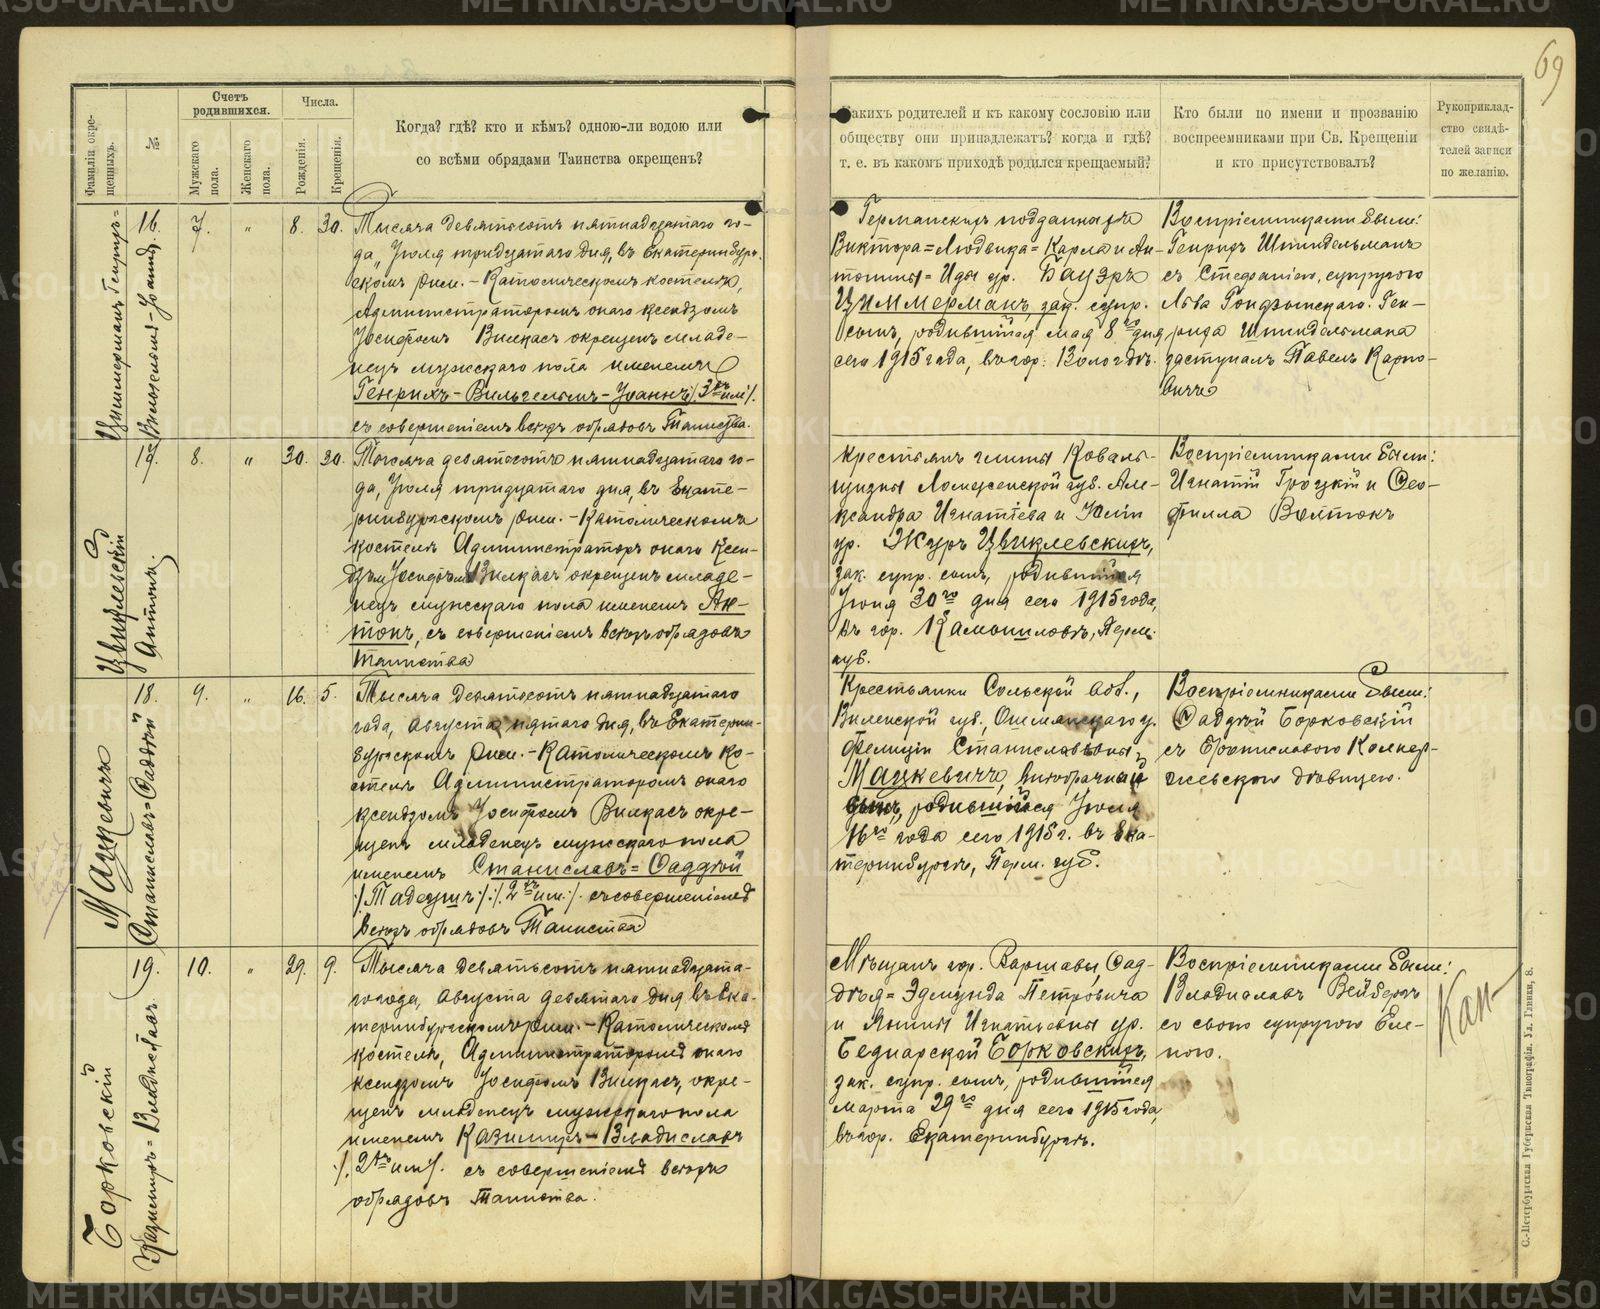 69
Фамиліи окре-
щенныхъ.
№
Счетъ
родившихся.
Мужскаго
пола.
Женскаго
пола.
Числа.
Рожденія.
Крещенія.
Когда? гдѣ? кто и кѣмъ? одною-ли водою или
со всѣми обрядами Таинства окрещенъ?
Какихъ родителей и къ какому сословію или
обществу они принадлежатъ? когда и гдѣ?
т. е. въ какомъ приходѣ родился крещаемый?
Кто были по имени и прозванію
воспреемниками при Св. Крещеніи
и кто присутствовалъ?
Рукоприклад-
ство свидѣ-
телей записи
по желанію.
Циммерманъ Генрихъ=
Вильгельмъ-Іоаннъ
16.
7.
"
8.
30.
Тысяча девятьсотъ пятнадцатаго го-
да, Іюля тридцатаго дня, въ Екатеринбург-
скомъ Рим.-Католическомъ костелѣ,
Администраторомъ онаго ксендзомъ
Іосифомъ Вилкасъ окрещенъ младе-
нецъ мужскаго пола именемъ
Генрихъ-Вильгельмъ-Іоаннъ /. 3хъ им /.
съ совершеніемъ всѣхъ обрядовъ Таинства.
Германскихъ подданныхъ
Виктора=Людвика=Карла и Ан-
тонины=Иды ур. Бауэръ
Циммерманъ, зак. супр.
сынъ, родившійся мая 8го дня
сего 1915 года, въ гор. Вологдѣ.
Воспріемниками были:
Генрихъ Шпиндельманъ
съ Стефаніею, супругою
Льва Гондзынскаго. Ген-
риха Шпиндельмана
заступалъ Павелъ Карпо-
вичъ
Цвиклевскій
Антоній.
17.
8.
"
30.
30.
Тысяча девятьсотъ пятнадцатаго го-
да, Іюля тридцатаго дня, въ Екате-
ринбургскомъ Рим.-Католическомъ
костелѣ Администраторъ онаго Ксен-
дзомъ Іосифомъ Вилкасъ окрещенъ младе-
нецъ мужскаго пола именемъ Ан-
тонъ, съ совершеніемъ всѣхъ обрядовъ
Таинства
Крестьянъ гмины Коваль-
щизны Ломженской губ. Але-
ксандра Игнатіева и Юліи
ур. Журъ Цвиклевскихъ,
зак. супр. сынъ, родившійся
Іюня 30го дня сего 1915 года,
въ гор. Камышловѣ, Перм.
губ.
Воспріемниками были:
Игнатій Гроцкій и Ѳео-
филла Войтюкъ
Мацкевичъ
Станиславъ=Ѳаддѣй
18.
9.
"
16.
5.
Тысяча девятьсотъ пятнадцатаго
года, Августа пятаго дня, въ Екатерин-
бургскомъ Рим.-Католическомъ Ко-
стелѣ Администраторомъ онаго
ксендзомъ Іосифомъ Вилкасъ окре-
щенъ младенецъ мужскаго пола
именемъ Станиславъ=Ѳаддѣй
:/. Тадеушъ :/. :/. 2хъ им. :/. съ совершеніемъ
всѣхъ обрядовъ Таинства
Крестьянки Сольской вол.,
Виленской губ., Ошмянскаго у.
Фелиціи Станиславовны
Мацкевичъ, внѣбрачный
сынъ, родившійся Іюля
16го года сего 1915 г. въ Ека-
теринбургѣ, Перм. губ.
Воспріемниками были:
Ѳаддѣй Борковскій
съ Брониславою
дѣвицею.
Борковскій
Казимиръ=Владиславъ
19.
10.
"
29.
9.
Тысяча девятьсотъ пятнадцата-
го года, Августа девятаго дня въ Ека-
теринбургскомъ Рим.-Католическомъ
костелѣ, Администраторомъ онаго
ксендзомъ Іосифомъ Вилкасъ, окре-
щенъ младенецъ мужскаго пола
именемъ Казимиръ-Владиславъ
:/. 2хъ им /. съ совершеніемъ всѣхъ
обрядовъ Таинства.
Мѣщанъ гор. Варшавы, Ѳад-
дѣя=Эдмунда Петровича
и Янины Игнатьевны ур.
Беднарской Борковскихъ,
зак. супр. сынъ, родившійся
марта 29го дня сего 1915 года,
въ гор. Екатеринбургѣ.
Воспріемниками были:
Владиславъ Вейбергъ
со своею супругою Еле-
ною.
С.-Петербургская Губернская Типографія. Ул. Глинки, 8.
METRIKI.GASO-URAL.RU